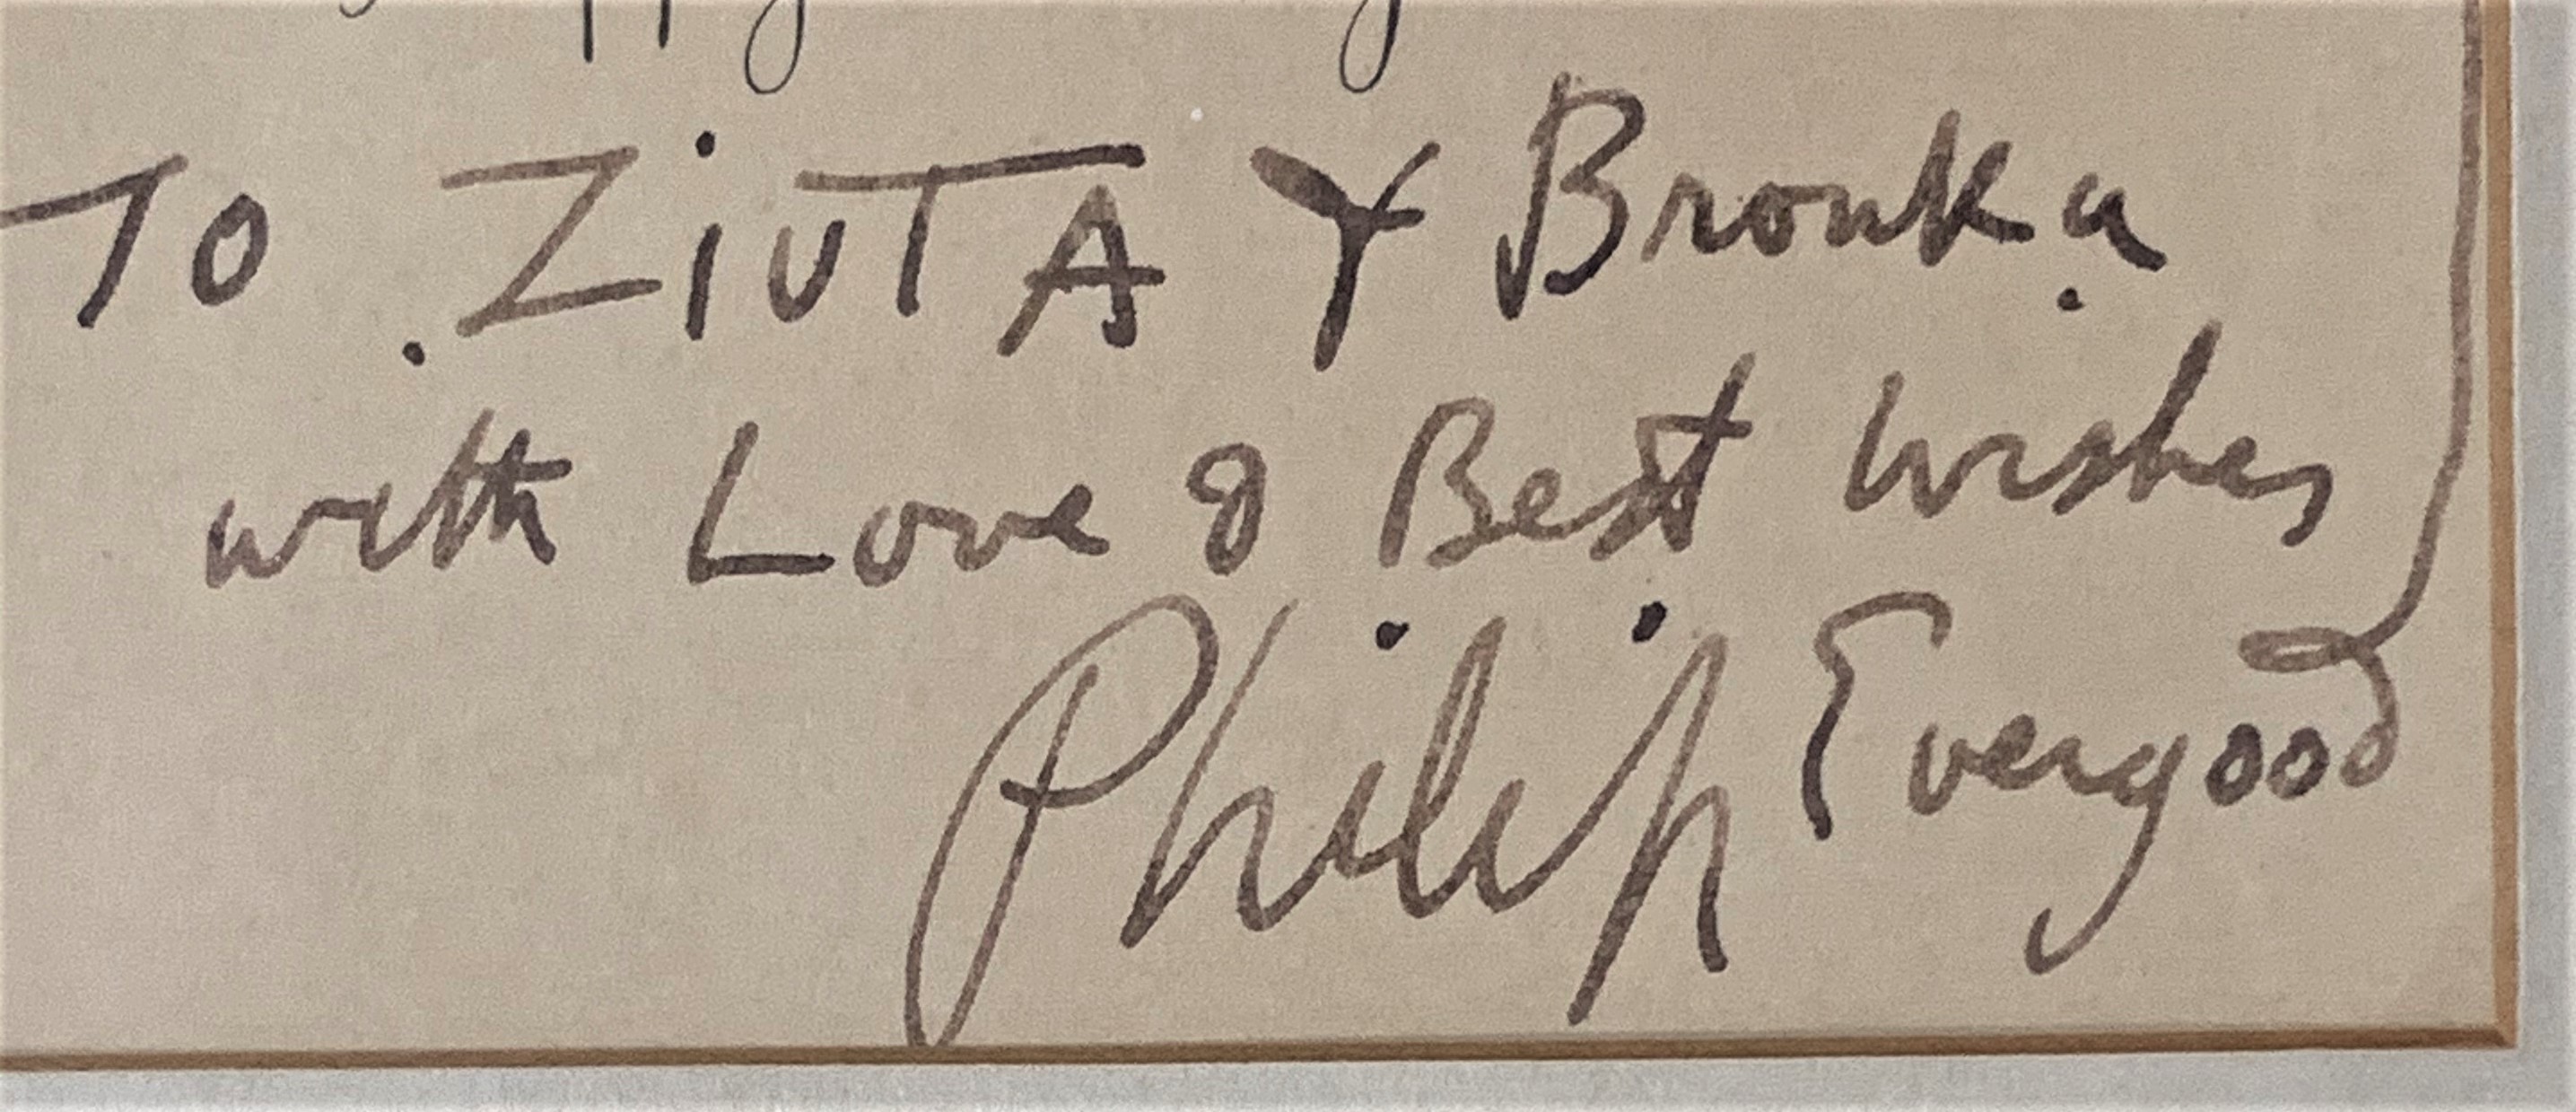 To ZiUTA & Bronka
with Love & Best Wishes
Philip Evergood